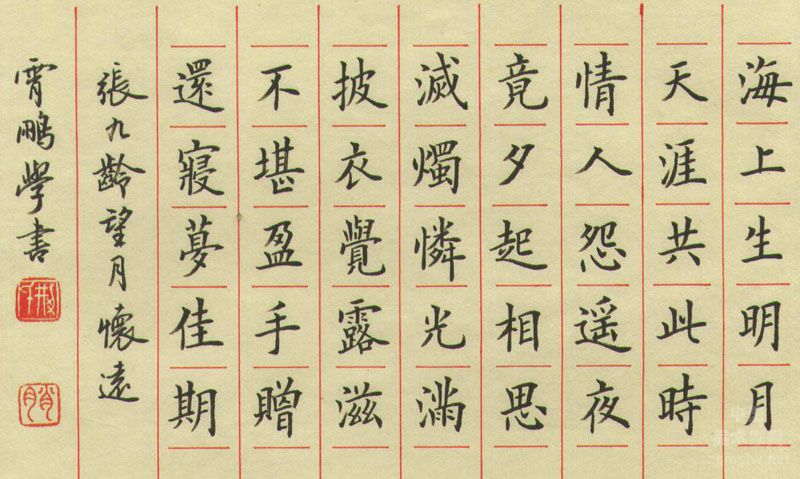 海上生明月
天涯共此時
情人怨遥夜
竟夕起相思
滅燭憐光滿
披衣覺露滋
不堪盈手贈
還寢夢佳期
張九齡望月懷遠
霄鵬學書